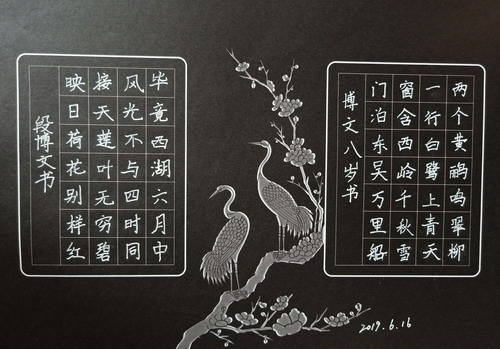 两个黄鹂鸣翠柳
一行白鹭上青天
窗含西岭千秋雪
门泊东吴万里船
博文八岁书
毕竟西湖六月中
风光不与四时同
接天莲叶无穷碧
映日荷花别样红
段博文书
2019.6.16